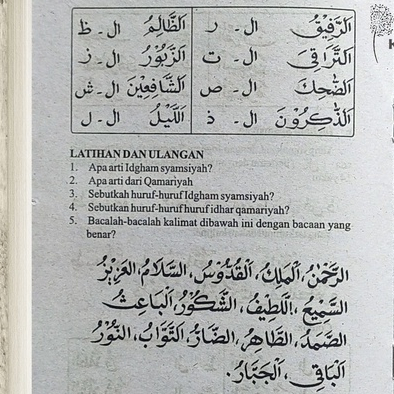 اَلرَّفِيْقُ ال - ر اَلظَّالِمُ ال - ظ
اَلتَّرَاقِيَ ال - ت اَلزَّبُوْرُ ال - ز
اَلضَّحِكَ ال - ص اَلشَّافِعِيْنَ ال - ش
اَلذّٰكِرُوْنَ ال - ذ اَللَّيْلُ ال - ل
LATIHAN DAN ULANGAN
1. Apa arti Idgham syamsiyah?
2. Apa arti dari Qamariyah
3. Sebutkah huruf-huruf Idgham syamsiyah?
4. Sebutkan huruf-huruf huruf idhar qamariyah?
5. Bacalah-bacalah kalimat dibawah ini dengan bacaan yang
benar?
اَلرَّحْمٰنُ، اَلْمَلِكُ، اَلْقُدُّوْسُ، اَلسَّلَامُ، اَلْعَزِيْزُ
اَلسَّمِيْعُ، اَللَّطِيْفُ، اَلشَّكُوْرُ، اَلْبَاعِثُ
اَلصَّمَدُ، اَلظَّاهِرُ، اَلضَّارُّ، اَلتَّوَّابُ، اَلنُّوْرُ
اَلْبَاقِي، اَلْجَبَّارُ.